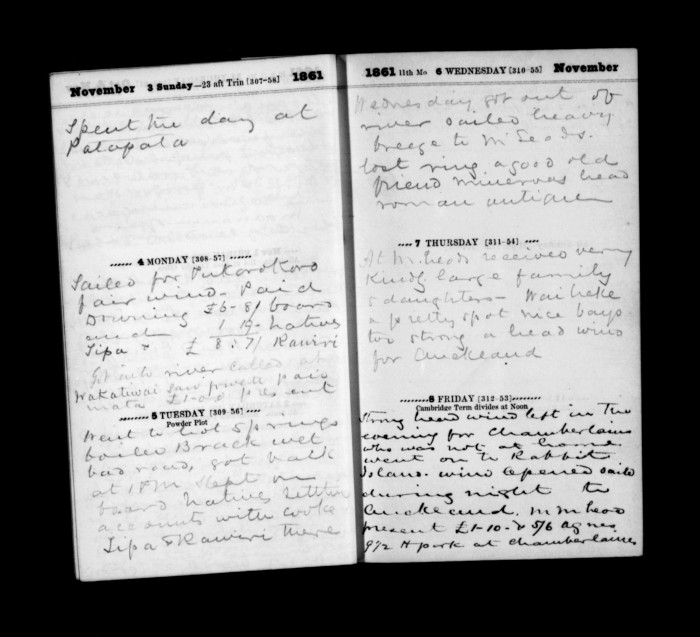 November 3 Sunday—23 aft Trin [307-58] 1861
Spent the day at
Patapata
4 MONDAY [308-57]
Sailed for Pukorokoro
fair wind - Paid
Downing £6-8/ board
and 1.19- natives
Tipa & £8:7/ Rawiri
Got into river called at
Wakatiwai saw pai
mata £1-0-0 present
5 TUESDAY [309-56]
Powder Plot
Went to hot Springs
boiled Brack wet
bad road, got back
at 1 PM slept on
board natives
accounts with cooke
Tipa & Rawiri there
1861 11th Mo 6 WEDNESDAY [310-55] November
Wednesday got out of
river sailed heavy
breeze to McLeods.
lost ring a good old
friend minervas head
roman antique
7 THURSDAY [311-54]
At McLeods received very
kindly large family
5 daughters - Waiheke
a pretty spot nice bays
too strong a head wind
for Auckland
8 FRIDAY [312-53]
Cambridge Term divides at Noon
Strong head wind left in the
evening for Chamberlains
who was not at home
went on to Rabbit
Island. wind opened sailed
during night to
Auckland. McLeod
present £1-10- & 5/6 agnes
9/2 H pork at Chamberlains